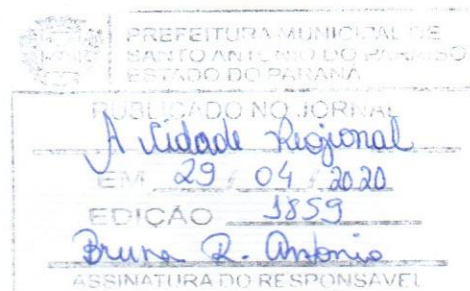 PREFEITURA MUNICIPAL DE
SANTO ANTONIO DO PARAISO
ESTADO DO PARANÁ
PUBLICADO NO JORNAL
A Cidade Regional
EM 29 / 04 / 2020
EDIÇÃO 1859
Bruna R. Antonio
ASSINATURA DO RESPONSÁVEL